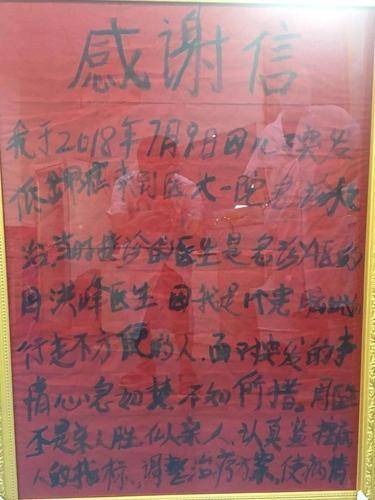 感谢信
我于2018年7月9日因儿子突发
低血钾症来到医大一院急诊救
治,当时接诊的医生是急诊医的
周洪峰医生,因我是个老
行走不方便的人,面对突发的事
情心急如焚,不知所措。周医
不是亲人胜似亲人,认真监
人的指标,调整治疗方案。使病情